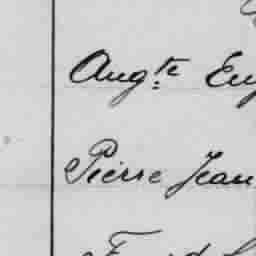 Augte Eug
Pierre Jean